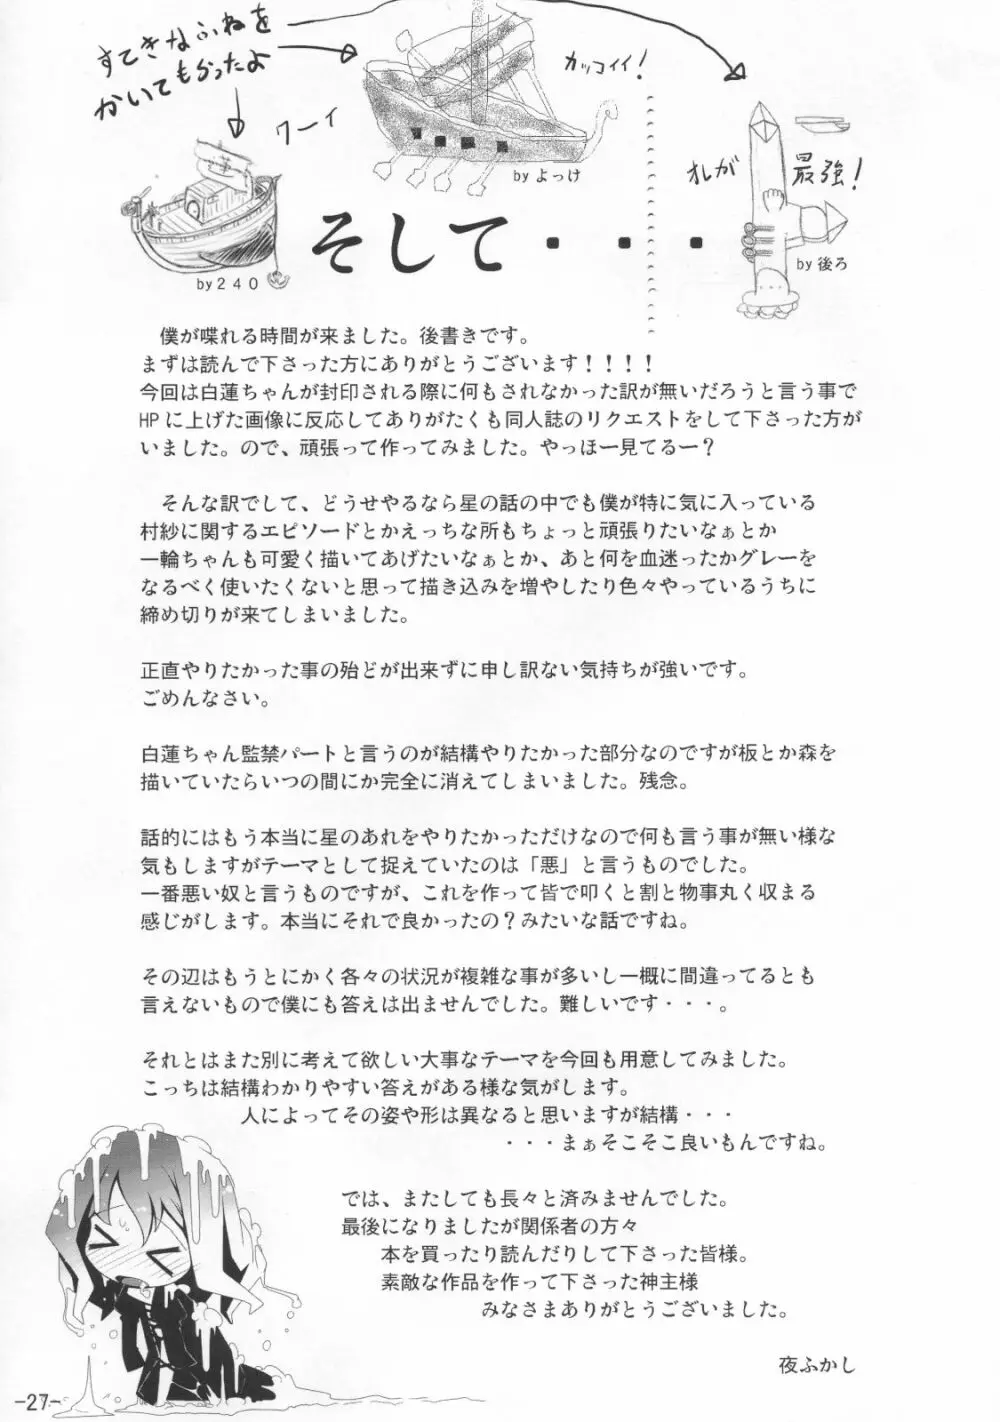 すてきなふねを
かいてもらったよ
ワーイ
カッコイイ!
オレが
最強!
by よっけ
by 240
by 後ろ
そして・・・
僕が喋れる時間が来ました。後書きです。
まずは読んで下さった方にありがとうございます!!!!
今回は白蓮ちゃんが封印される際に何もされなかった訳が無いだろうと言う事で
HPに上げた画像に反応してありがたくも同人誌のリクエストをして下さった方が
いました。ので、頑張って作ってみました。やっほー見てるー?
そんな訳でして、どうせやるなら星の話の中でも僕が特に気に入っている
村紗に関するエピソードとかえっちな所もちょっと頑張りたいなぁとか
一輪ちゃんも可愛く描いてあげたいなぁとか、あと何を血迷ったかグレーを
なるべく使いたくないと思って描き込みを増やしたり色々やっているうちに
締め切りが来てしまいました。
正直やりたかった事の殆どが出来ずに申し訳ない気持ちが強いです。
ごめんなさい。
白蓮ちゃん監禁パートと言うのが結構やりたかった部分なのですが板とか森を
描いていたらいつの間にか完全に消えてしまいました。残念。
話的にはもう本当に星のあれをやりたかっただけなので何も言う事が無い様な
気もしますがテーマとして捉えていたのは「悪」と言うものでした。
一番悪い奴と言うものですが、これを作って皆で叩くと割と物事丸く収まる
感じがします。本当にそれで良かったの?みたいな話ですね。
その辺はもうとにかく各々の状況が複雑な事が多いし一概に間違ってるとも
言えないもので僕にも答えは出ませんでした。難しいです・・・。
それとはまた別に考えて欲しい大事なテーマを今回も用意してみました。
こっちは結構わかりやすい答えがある様な気がします。
人によってその姿や形は異なると思いますが結構・・・
・・・まぁそこそこ良いもんですね。
では、またしても長々と済みませんでした。
最後になりましたが関係者の方々
本を買ったり読んだりして下さった皆様。
素敵な作品を作って下さった神主様
みなさまありがとうございました。
夜ふかし
-27-